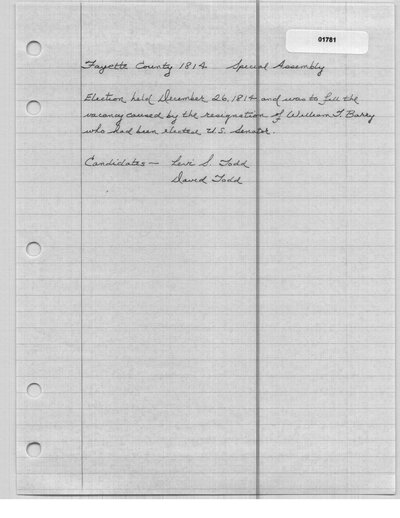 01781
Fayette County 1814 Special Assembly
Election held December 26, 1814 and was to fill the
vacancy caused by the resignation of William T. Barry
who had been elected U.S. Senator.
Candidates — Levi S. Todd
David Todd